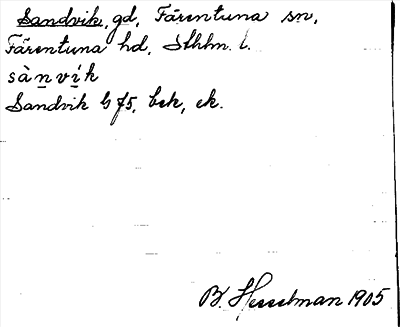 Sandvik, gd, Färentuna sn,
Färentuna hd, Sthlm. l.
sàn̲vi̲k
Sandvik G f5, bek, ek.
B. Hesselman 1905